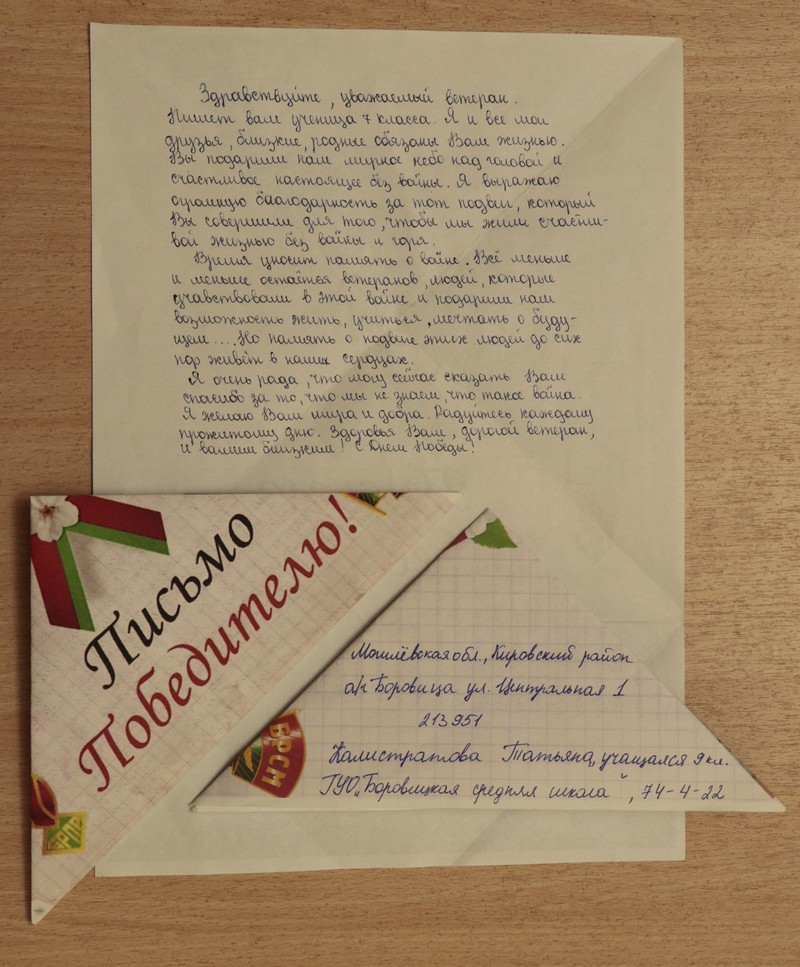 Здравствуйте, уважаемый ветеран.
Пишет вам ученица 7 класса. Я и все мои
друзья, близкие, родные обязаны Вам жизнью.
Вы подарили нам мирное небо над головой и
счастливое настоящее без войны. Я выражаю
огромную благодарность за тот подвиг, который
Вы совершили для того, чтобы мы жили счастли-
вой жизнью без войны и горя.
Время уносит память о войне. Всё меньше
и меньше остаётся ветеранов, людей, которые
учавствовали в этой войне и подарили нам
возможность жить, учиться, мечтать о буду-
щем.... Но память о подвиге этих людей до сих
пор живёт в наших сердцах.
Я очень рада, что могу сейчас сказать Вам
спасибо за то, что мы не знаем, что такое война.
Я желаю Вам мира и добра. Радуйтесь каждому
прожитому дню. Здоровья Вам, дорогой ветеран,
и вашим близким! С Днем Победы!
Письмо
Победителю!
БРПО
БРСМ
Могилёвская обл., Кировский район
а/г Боровица ул. Центральная 1
213951
Калистратова Татьяна, учащаяся 9 кл.
ГУО „Боровицкая средняя школа", 74-4-22